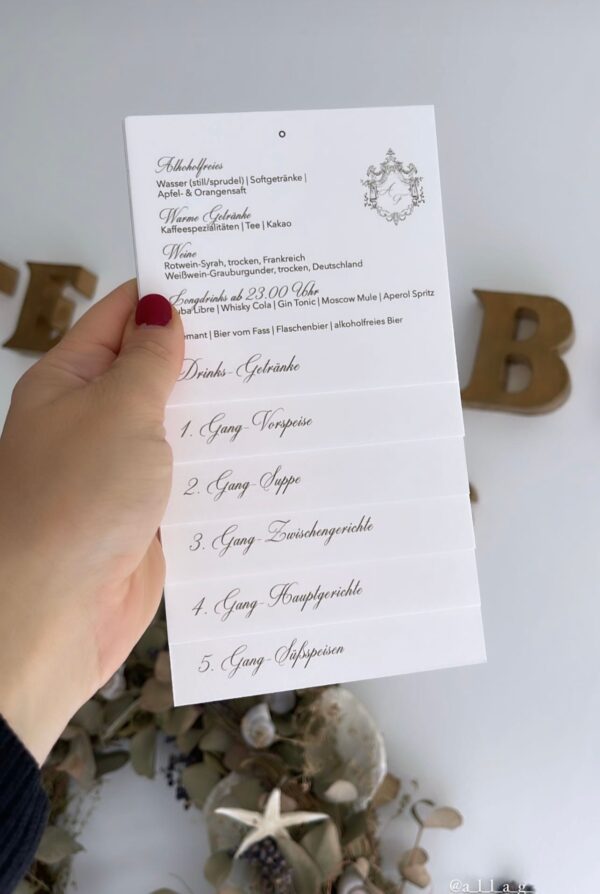 Alkoholfreies
Wasser (still/sprudel) | Softgetränke |
Apfel- & Orangensaft
Warme Getränke
Kaffeespezialitäten | Tee | Kakao
Weine
Rotwein-Syrah, trocken, Frankreich
Weißwein-Grauburgunder, trocken, Deutschland
Longdrinks ab 23.00 Uhr
Libre | Whisky Cola | Gin Tonic | Moscow Mule | Aperol Spritz
| Bier vom Fass | Flaschenbier | alkoholfreies Bier
Drinks - Getränke
1. Gang - Vorspeise
2. Gang - Suppe
3. Gang - Zwischengerichte
4. Gang - Hauptgerichte
5. Gang - Süßspeisen
E
B